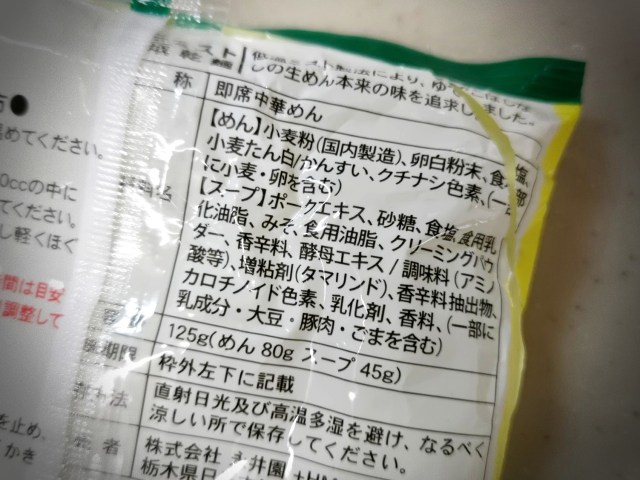 スト
低温
製法により、ゆ
しの生めん本来の味を追求しました。
称
即席中華めん
【めん】小麦粉(国内製造)、卵白粉末、食塩、
小麦たん白/かんすい、クチナシ色素、(一部
に小麦・卵を含む)
名
【スープ】ポークエキス、砂糖、食塩、食用乳
化油脂、みそ、食用油脂、クリーミングパウ
ダー、香辛料、酵母エキス/調味料(アミノ
酸等)、増粘剤(タマリンド)、香辛料抽出物、
カロチノイド色素、乳化剤、香料、(一部に
乳成分・大豆・豚肉・ごまを含む)
125g(めん 80g スープ 45g)
期限
枠外左下に記載
方法
直射日光及び高温多湿を避け、なるべく
涼しい所で保存してください。
者
株式会社
井園
栃木県日
めてください。
0ccの中に
てください。
し軽くほぐ
間は目安
調整して
を止め、
かき